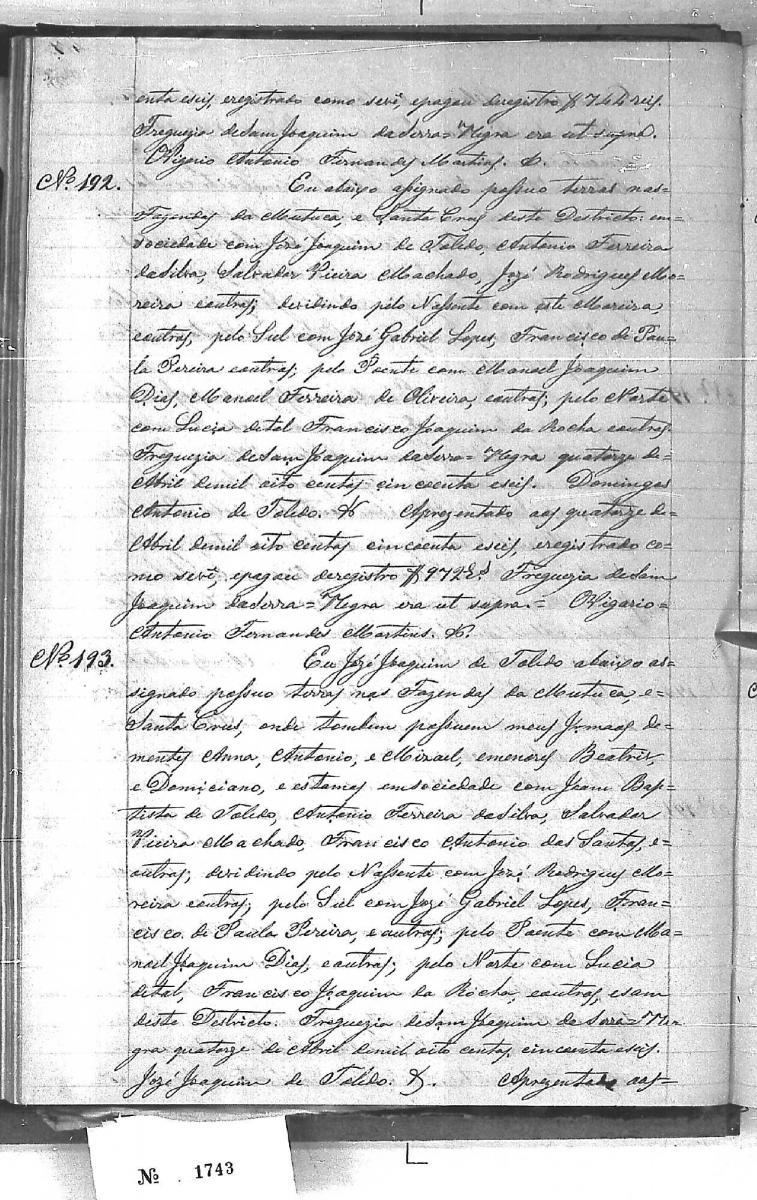 enta eseis, eregistrado como se vê, epagou deregistro $744 reis.
Freguezia deSam Joaquim daSerra=Negra era ut supra.
OVigario Antonio Fernandes Martins. &.
Nº 192. Eu abaixo asignado possuo terras nas=
Fazendas da Mutuca, e Santa Crus deste Destricto: em=
sociedade com Jozé Joaquim de Toledo, Antonio Ferreira
daSilva, Salvador Vieira Machado, Jozé Rodrigues Mo=
reira eoutros; devidindo pelo Nassente com este Moreira,
eoutros, pelo Sul com Jozé Gabriel Lopes, Francisco de Pau=
la Pereira eoutros; pelo Poente com Manoel Joaquim
Dias, Manoel Ferreira de Oliveira, eoutros; pelo Norte
com Lucia detal Francisco Joaquim da Rocha eoutros.
Freguezia deSam Joaquim daSerra=Negra quatorze de=
Abril demil oito centos cincoenta eseis. Domingos
Antonio de Toledo. & Aprezentado aos quatorze de=
Abril demil oito centos cincoenta eseis, eregistrado co=
mo se vê, epagou deregistro $972 rs. Freguezia deSam
Joaquim daSerra=Negra era ut supra.= OVigario=
Antonio Fernandes Martins. &.
Nº 193. Eu Jozé Joaquim de Toledo abaixo as=
signado possuo terras nas Fazendas da Mutuca, e=
Santa Crus, onde tambem possuem meus Irmaos de=
mentes Anna, Antonio, e Mizael, emenores Beatris,
e Domiciano, e estamos emsociedade com Joam Bap=
tista de Toledo, Antonio Ferreira daSilva, Salvador
Vieira Machado, Francisco Antonio dos Santos, e=
outros; devidindo pelo Nassente com Jozé Rodrigues Mo=
reira eoutros; pelo Sul com Jozé Gabriel Lopes, Fran=
cisco de Paula Pereira, e outros; pelo Poente com Ma=
noel Joaquim Dias, eoutros; pelo Norte com Lucia
detal, Francisco Joaquim da Rocha, eoutros, esam
deste Destricto. Freguezia deSam Joaquim da Serra=Ne=
gra quatorze de Abril demil oito centos, cincoenta eseis.
Jozé Joaquim de Toledo. &. Aprezentado aos=
Nº 1743